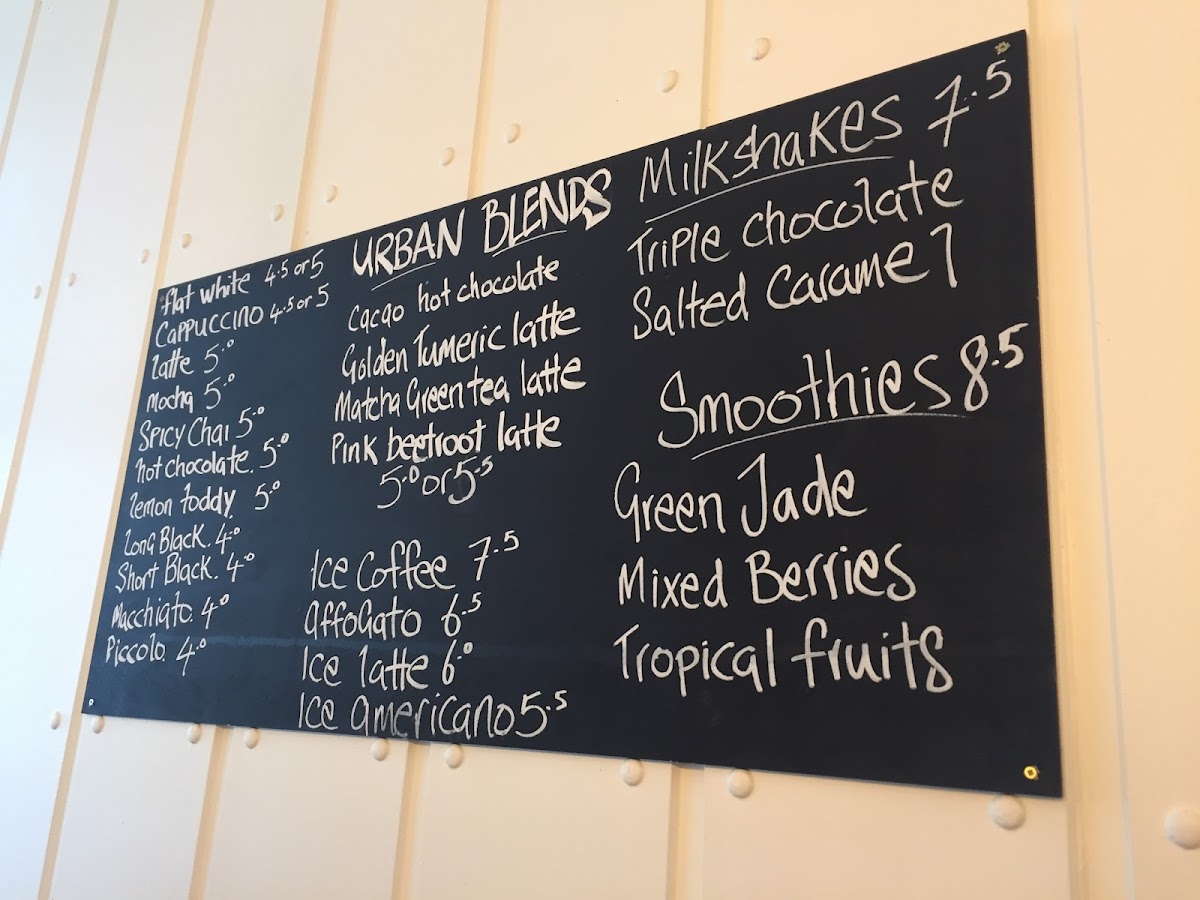 flat white 4.5 or 5
Cappuccino 4.5 or 5
latte 5.0
mocha 5.0
Spicy Chai 5.0
hot chocolate. 5.0
lemon toddy. 5.0
Long Black. 4.0
Short Black. 4.0
Macchiato. 4.0
Piccolo. 4.0
URBAN BLENDS
Cacao hot chocolate
Golden Tumeric latte
Matcha Green tea latte
Pink beetroot latte
5.0 or 5.5
Ice Coffee 7.5
affogato 6.5
Ice latte 6.0
Ice americano 5.5
Milkshakes 7.5
Triple chocolate
Salted Caramel
Smoothies 8.5
Green Jade
Mixed Berries
Tropical fruits